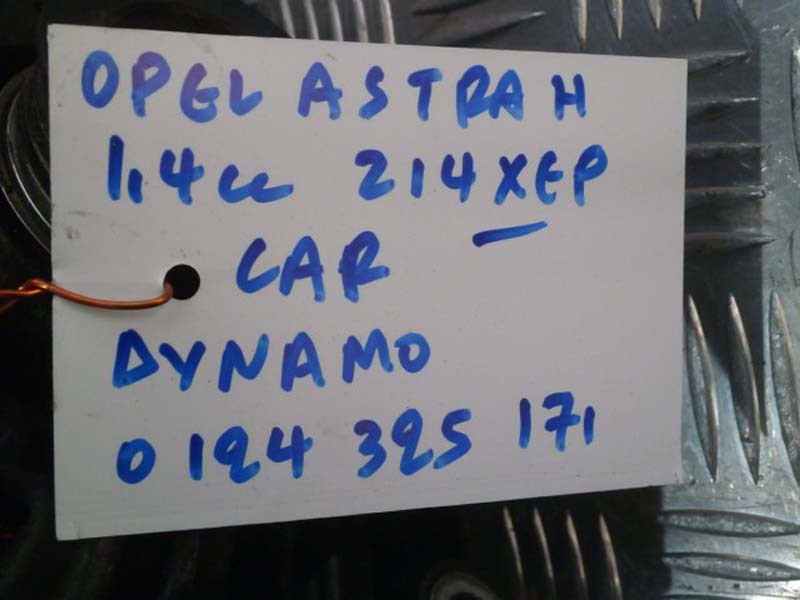 OPEL ASTRA H
1,4cc 214XEP
CAR
DYNAMO
0 124 325 171